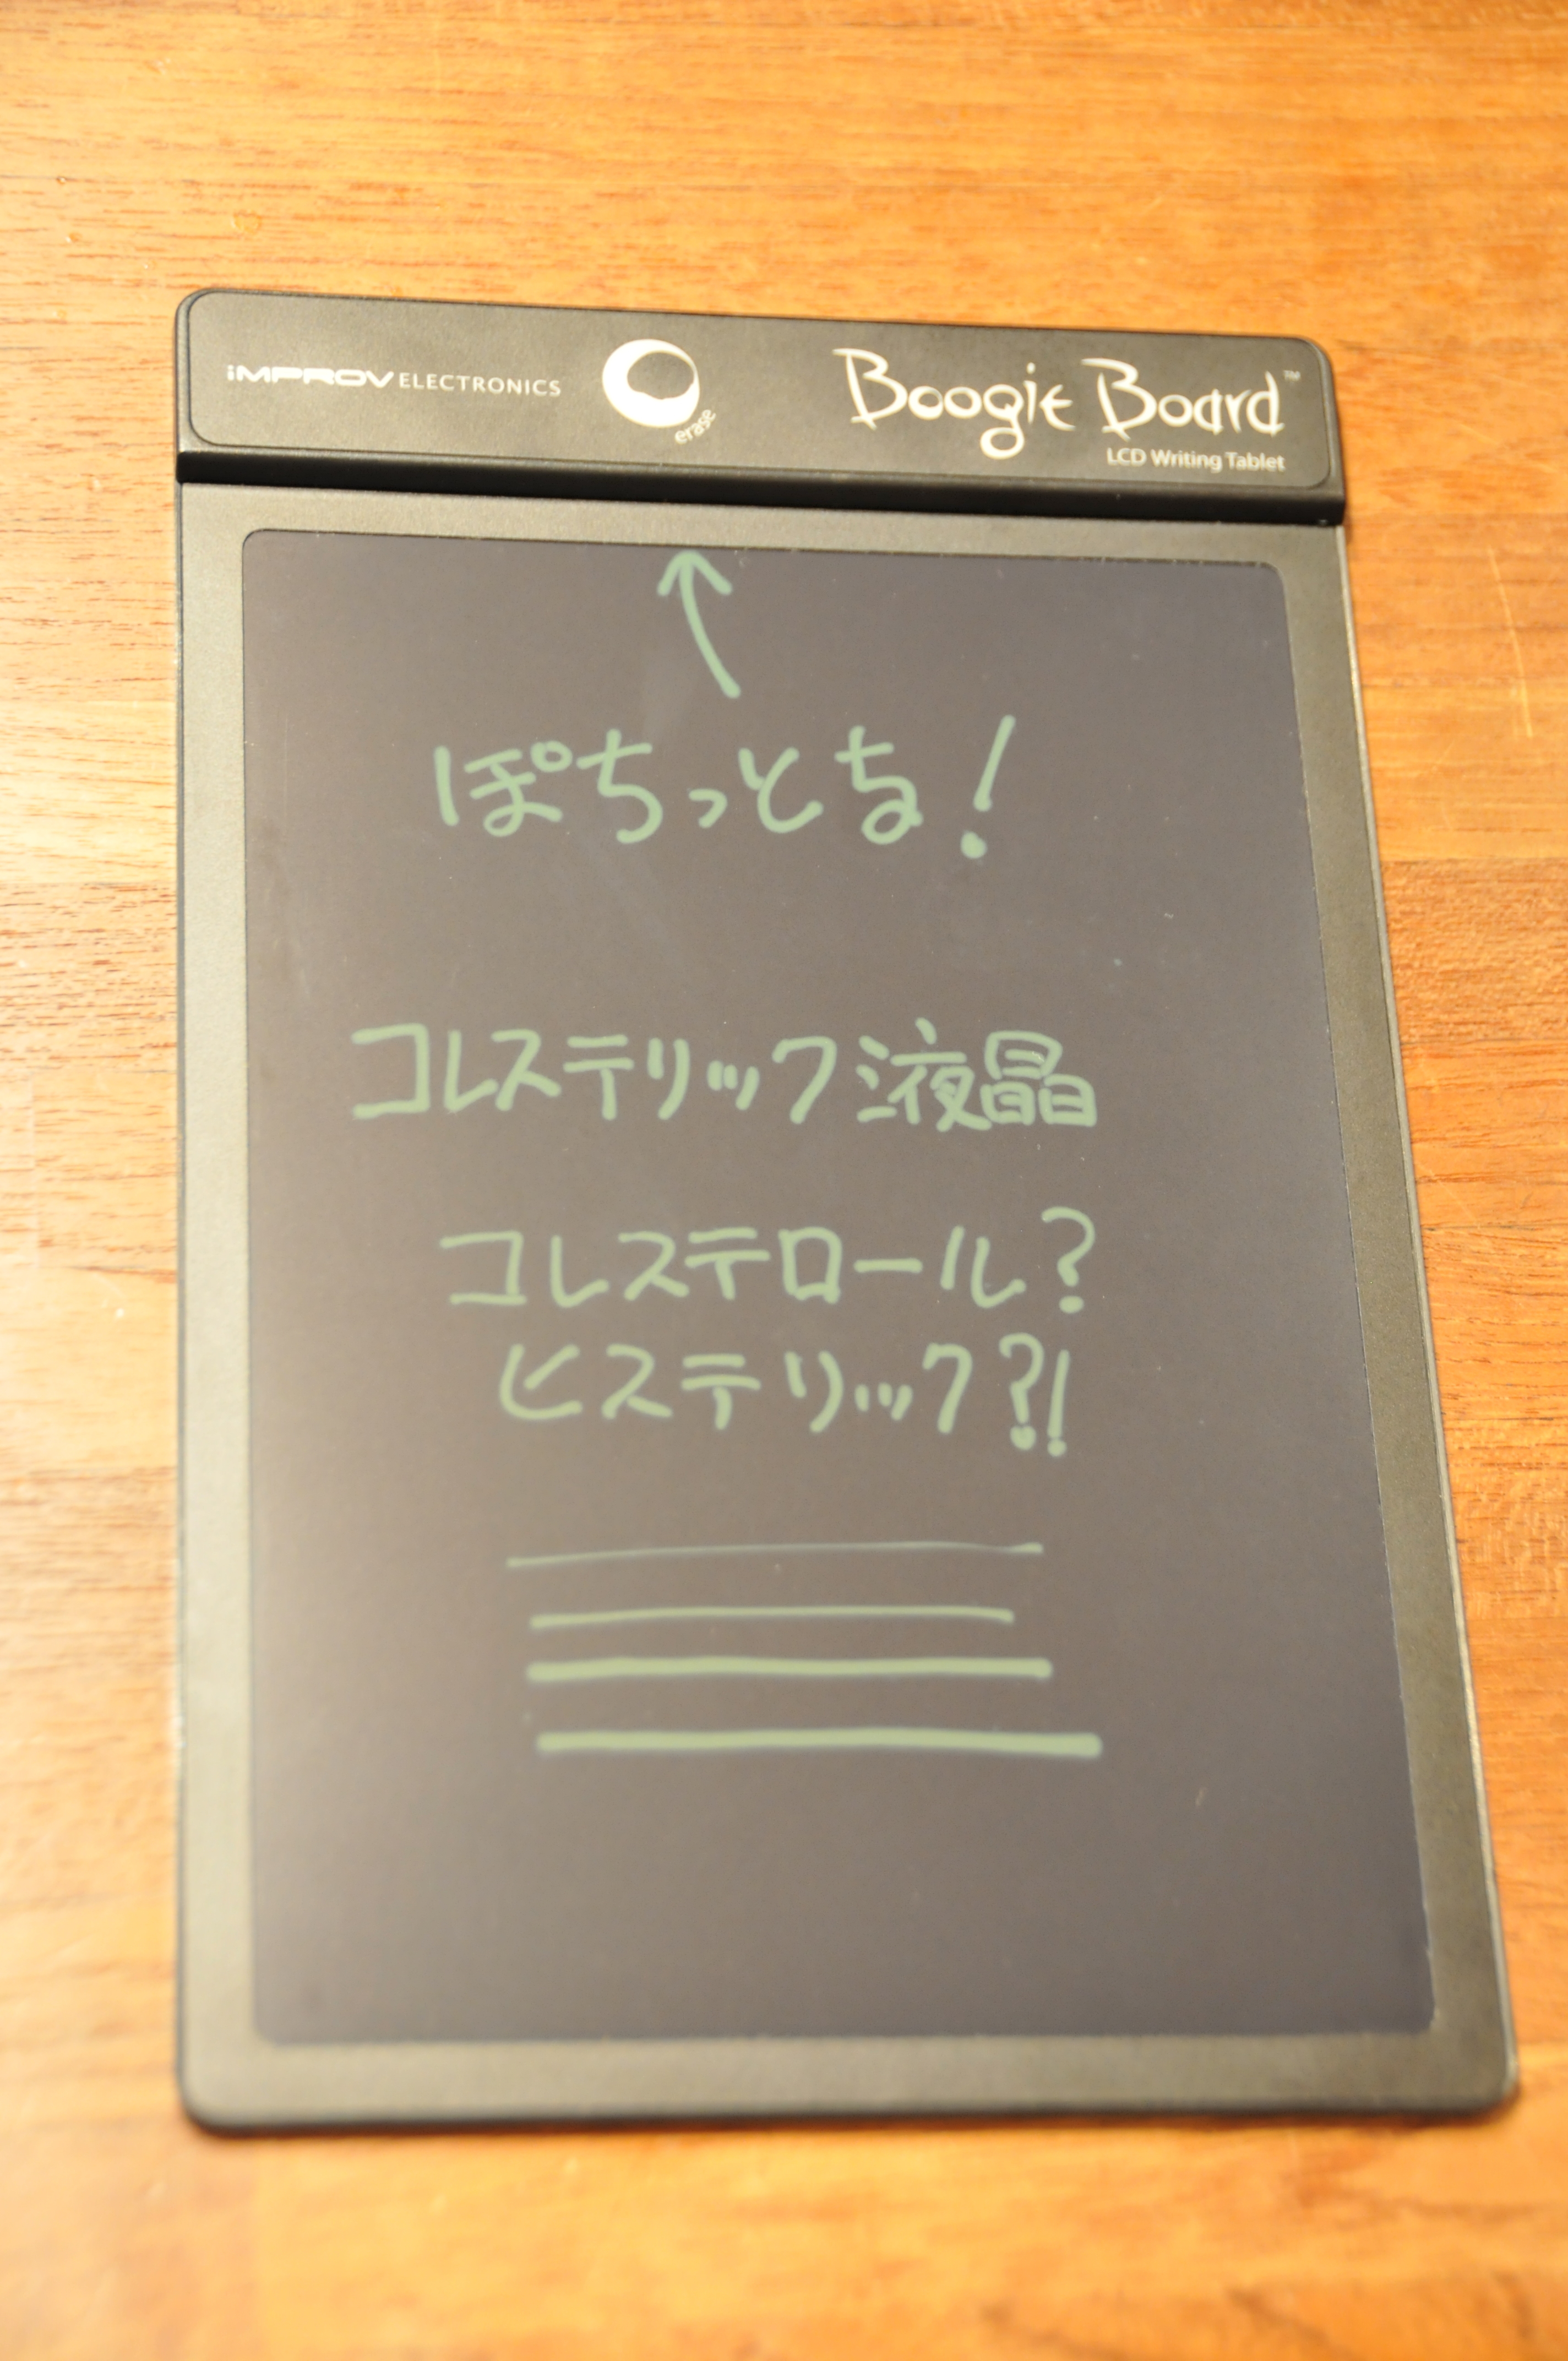 iMPROV ELECTRONICS
erase
Boogie Board™
LCD Writing Tablet
↑
ぽちっとな!
コレステリック液晶
コレステロール?
ヒステリック?!